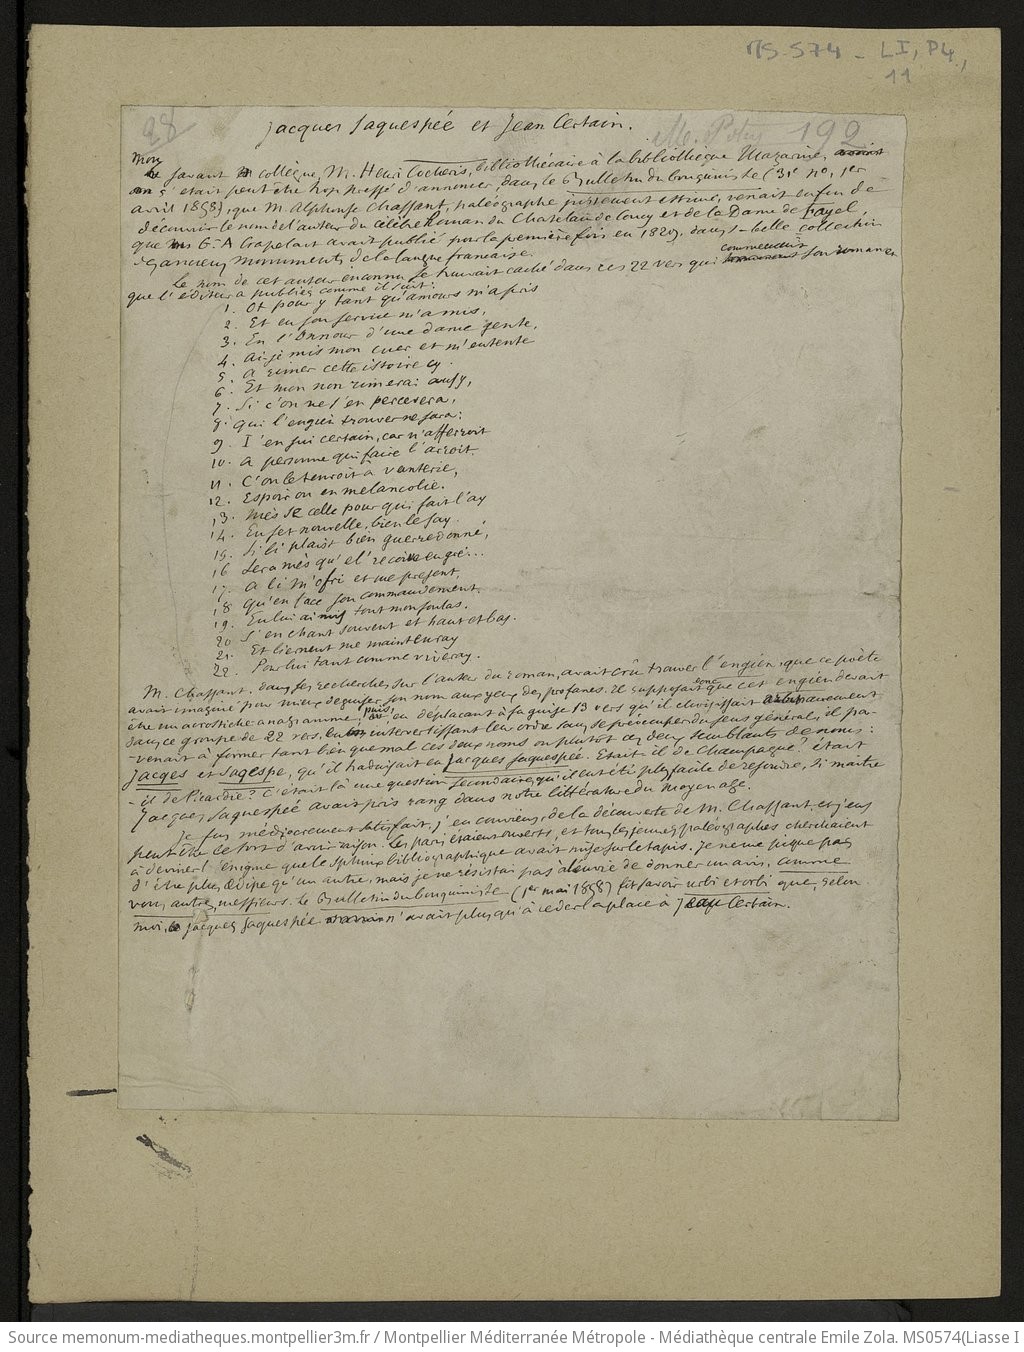 MS-574 - LI, P4,
11
28
192
Jacques Saquespée et Jean Certain.
Mon
savant collègue, M. Henri Cocheris, bibliothécaire à la bibliothèque Mazarine,
s'était peut-être trop pressé d'annoncer dans le Bulletin du bouquiniste (31e no, 1er
avril 1858), que M. Alphonse Chassant, paléographe justement estimé, venait enfin de
découvrir le nom de l'auteur du célèbre Roman du Chatelain de Coucy et de la Dame de Fayel,
que G.-A Crapelart avait publié pour la première fois en 1829, dans s- belle collection
d'anciens monuments de la langue francaise.
commencent
Le nom de cet auteur inconnu se trouvait caché dans ces 22 vers qui son romance
que l'éditeur a publiés comme il suit:
1. Ot pour y tant qu'amours m'a pris
2. Et en son service m'a mis,
3. En l'onnour d'une dame gente,
4. Ai-je mis mon cuer et m'entente
5. A rimer cette istoire cy.
6. Et mon non rimerai ausy,
7. Si c'on ne s'en percevera,
8. Qui l'engien trouver ne sara:
9. J'en sui certain, car n'afferroit
10. A personne qui faire l'aroit.
11. C'on le tenroit à vanterie,
12. Espoir ou en melancolie.
13. Mès se celle pour qui fait l'ay
14. En set nouvelle, bien le say.
15. Si li plaist bien guerredonné,
16 Sera mès qu'el reçoive en gré...
17. A li m'ofri et me present,
18 Qu'en face son commandement.
19. En lui ai mis tout mon soulas.
20 S'en chant souvent et haut et bas.
21. Et liement me maintenray
22. Pour lui tant comme viveray.
M. Chassant, dans ses recherches sur l'auteur du roman, avait crû trouver l'engien, que ce poète
avait imaginé pour mieux déguiser son nom aux yeux des profanes. Il supposait donc que cet engien devait
être un acrostiche anagramme; puis, en déplacant à sa guise 13 vers qu'il choisissait arbitrairement
dans ce groupe de 22 vers, en intervertissant leur ordre sans se préoccuper du sens général, il pa-
-venait à former tant bien que mal ces deux noms ou plutôt ces deux semblants de noms:
Jacqes et Sagespe, qu'il traduisait en Jacques Saquespée. Etait-il de Champagne? était
-il de Picardie? C'était là une question secondaire, qu'il eut été plus facile de resoudre, si maître
Jacques Saquespée avait pris rang dans notre littérature du moyen age.
Je fus médiocrement satisfait, j'en conviens, de la découverte de M. Chassant, et j'eus
peut-être le tort d'avoir raison. Les paris étaient ouverts, et tous les jeunes paléographes cherchaient
à deviner l'énigme que le sphinx bibliographique avait mise sur le tapis. Je ne me pique pas
d'être plus Œdipe qu'un autre, mais je ne résistai pas à l'envie de donner un avis, comme
vous autres, messieurs. Le Bulletin du bouquiniste (1er mai 1858) fit savoir urbi et orbi que, selon
moi, Jacques Saquespée n'avait plus qu'à ceder la place à Jean Certain.
Source memonum-mediatheques.montpellier3m.fr / Montpellier Méditerranée Métropole - Médiathèque centrale Emile Zola. MS0574(Liasse I